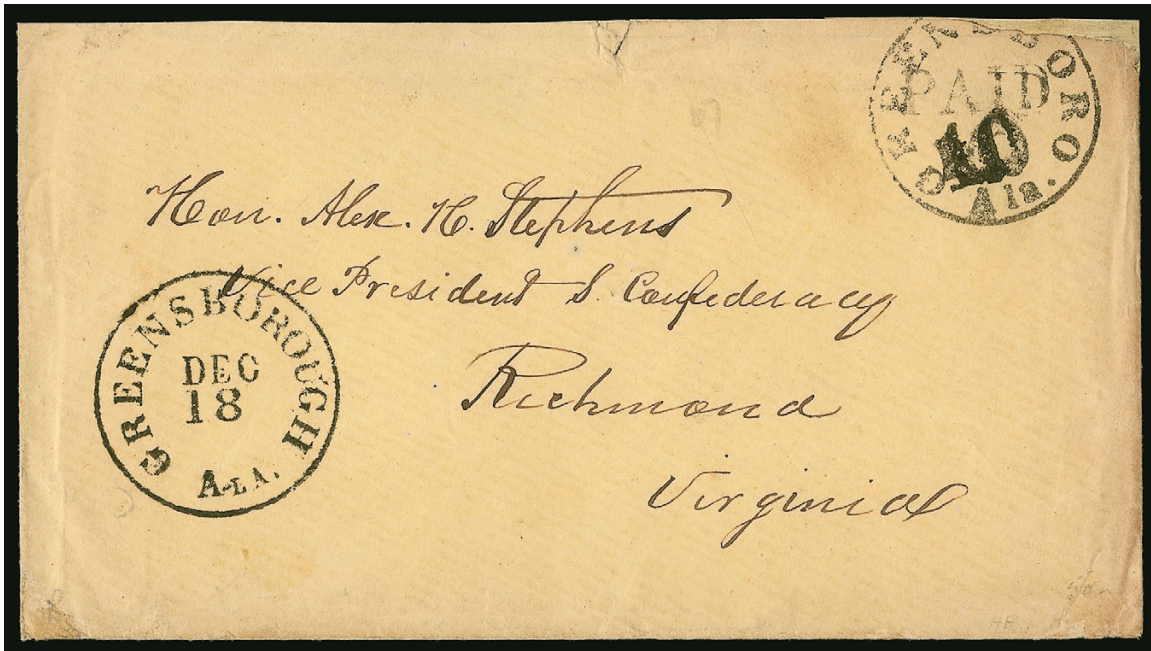 GREENSBORO
PAID
10
Ala.
Hon. Alex. H. Stephens
Vice President S. Confederacy
Richmond
Virginia
GREENSBOROUGH
DEC
18
ALA.